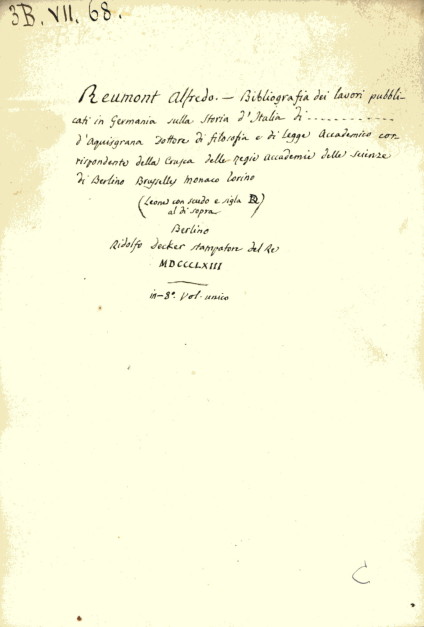 3B. VII. 68.
Reumont Alfredo. — Bibliografia dei lavori pubbli-
cati in Germania sulla Storia d'Italia di ............
d'Aquisgrana Dottore di filosofia e di legge Accademico cor-
rispondente della Crusca delle regie Accademie delle scienze
di Berlino Bruxelles Monaco Torino
(Leone con scudo e sigla RD
al di sopra)
Berlino
Ridolfo Decker stampatore del Re
MDCCCLXIII
in-8°. Vol. unico
C